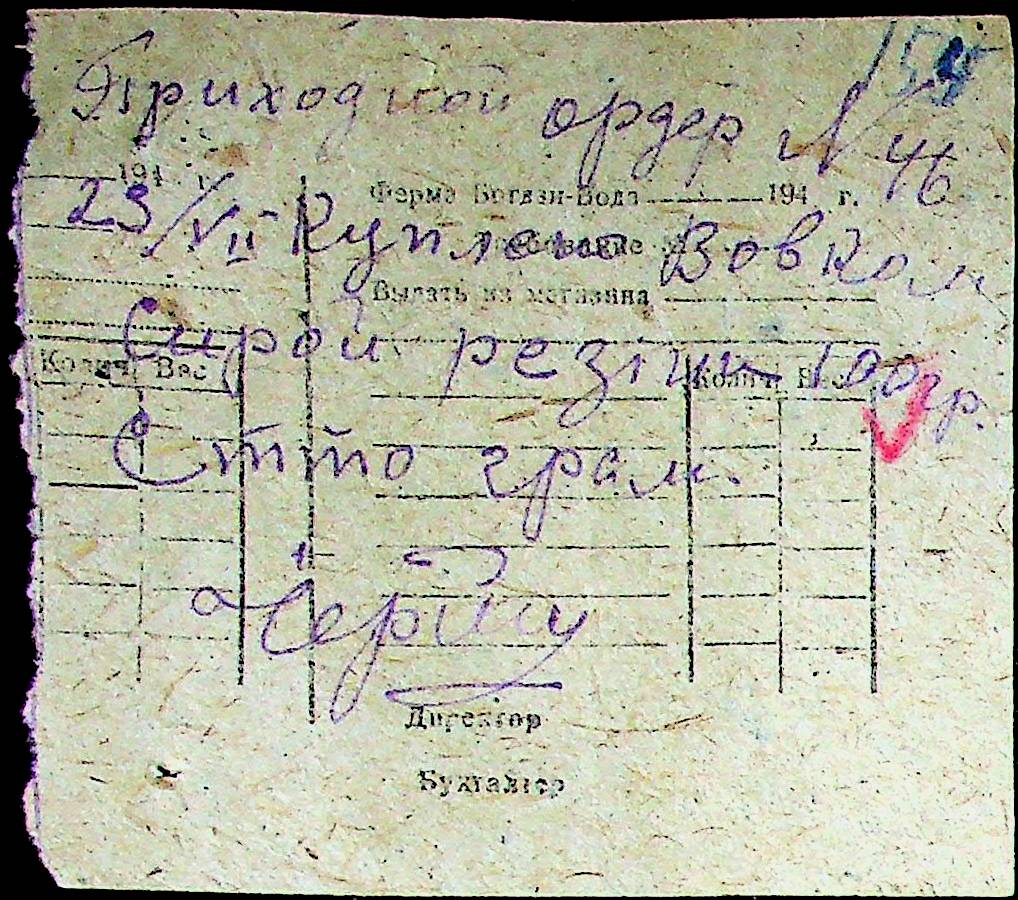 154
Приходной ордер № 46
194 г.
Ферма Богдан-Вода 194 г.
23/VII Куплено Вовком
Выдать из магазина
Сирой резіни 100 гр.
Колич. Вес
Колич. Вес
Стто грам.
Директор
Бухгалтер